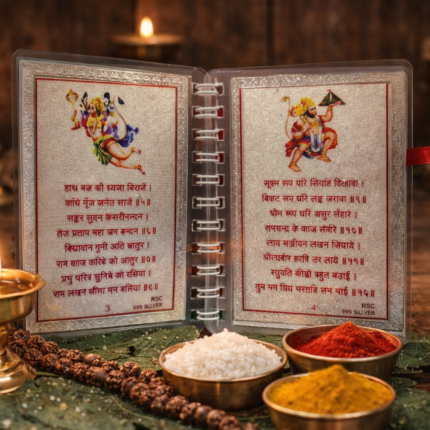 हाथ बज्र श्री ध्वजा बिराजै ।
काँधे मूँज जनेउ साजै ॥५॥
सङ्कर सुवन केसरीनन्दन ।
तेज प्रताप महा जग बन्दन ॥६॥
बिद्यावान गुनी अति चातुर ।
राम काज करिबे को आतुर ॥७॥
प्रभु चरित्र सुनिबे को रसिया ।
राम लखन सीता मन बसिया ॥८॥
3
RSC
999 SILVER
सूक्ष्म रूप धरि सियहिं दिखावा ।
बिकट रूप धरि लङ्क जरावा ॥९॥
भीम रूप धरि असुर सँहारे ।
रामचन्द्र के काज सँवारे ॥१०॥
लाय सजीवन लखन जियाये ।
श्रीरघुबीर हरषि उर लाये ॥११॥
रघुपति कीन्ही बहुत बड़ाई ।
तुम मम प्रिय भरतहि सम भाई ॥१२॥
4
RSC
999 SILVER